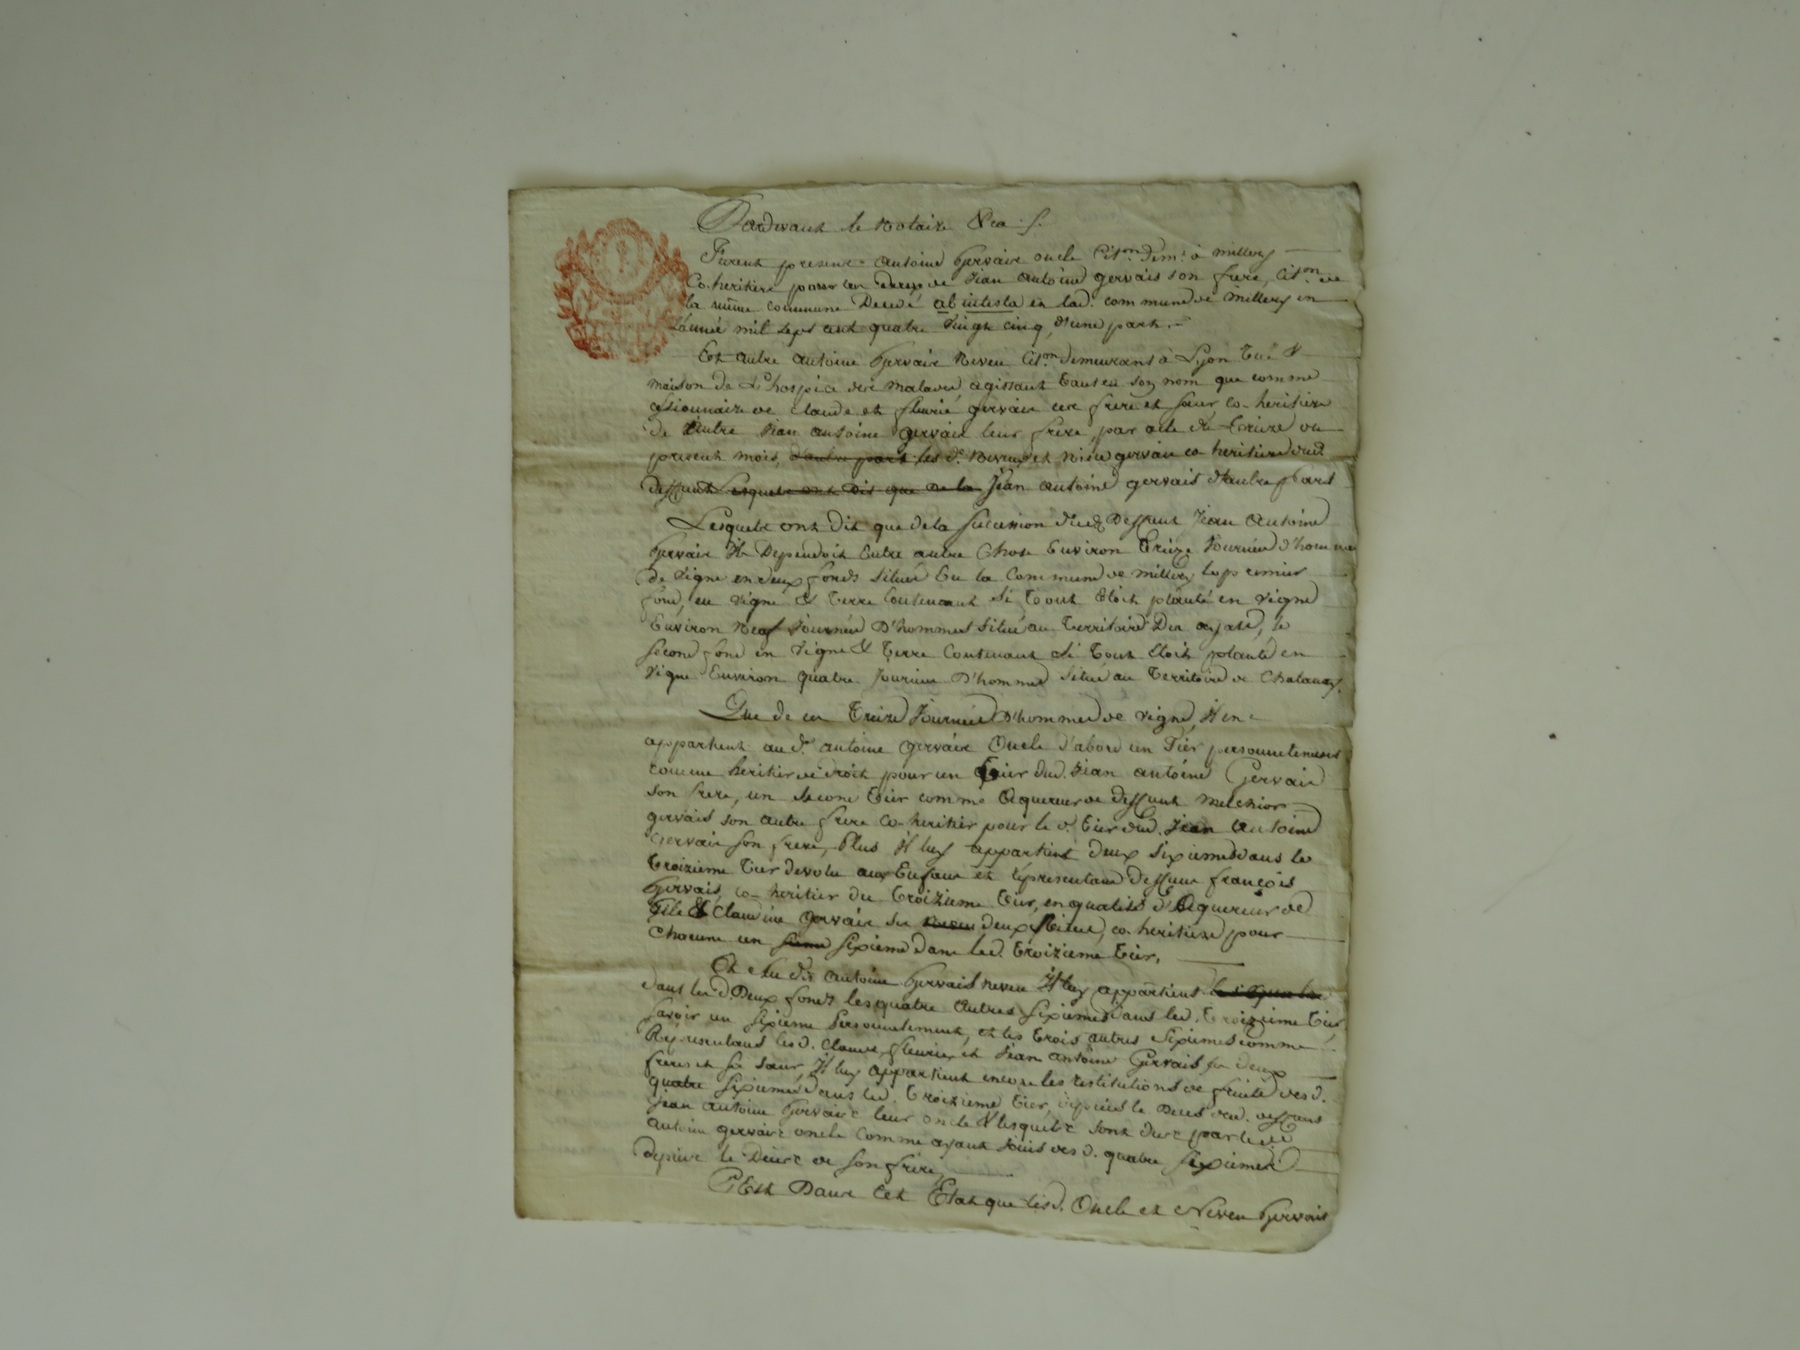 Pardevant le Notaire &ca S.
Furent présent antoine Gervais oncle Cit.en dem.t à millery
Co-heritier pour un de Jean Antoine gervais son frere, Cit.en de
la même commune Decedé ab intesta en lad. commune de Millery en
Lannée mil sept cent quatre vingt cinq, d'une part.
Et autre antoine Gervais Neveu Cit.en demeurant à Lyon
maison de L'hospice des malades, agissant tant en son nom que comme
césionnaire de Claude et fleurie gervais ses frere et sœur co-heritiers
de autre Jean antoine Gervais leur frere, par acte du treize du
present mois, d'autre part les d. Neveux et Niece gervais co heritiers dud.
deffunt lesquels ont dit que de la Jean antoine gervais d'autre part
Lesquels ont dit que de la sucession dud. Deffunt Jean Antoine
Gervais Il Dependoit Entre autre Chose Environ Treize Journées d'homme
de vigne en deux fonds situés En la Commune de millery le premier
fond, en vigne & Terre Contenant si Tout Etoit planté en vigne
Environ Neuf Journées D'hommes situé au Territoire Des, le
second fond en vigne & Terre Contenant si Tout Etoit planté en
vigne Environ quatre Journées D'hommes situé au Territoire de
Que de ces Treize Journées D'hommes de vigne, Il en
appartient au d. antoine gervais Oncle d'abord un Tier personnellement
comme heritier de droit pour un Tier dud. Jean antoine Gervais
son frere, un second Tier comme Aquereur de deffunt Melchior
gervais son autre frere co-heritier pour le d. Tier dud. Jean Antoine
Gervais son frere, Plus Il luy appartient deux sixiemes dans le
Troizieme Tier devolu aux Enfans et representans deffunt françois
Gervais, co-heritier du Troizieme Tier, en qualité d'Aquereur de
& Claudine gervais ses deux Nieces, co-heritiere pour
Chacune un sixieme dans led. Troizieme Tier,
Et aud. antoine Gervais neveu Il luy appartient
dans les d. Deux fonds les quatre autres sixiemes dans led. Troizieme Tier,
savoir un sixieme personnellement, et les trois autres sixiemes comme
Representans lesd. Claude, fleurie, et Jean antoine Gervais ses deux
freres et sa sœur, Il luy appartient encore les restitutions de fruits desd.
quatre sixiemes dans led. Troizieme Tier, depuis le Deces dud. deffunt
Jean antoine Gervais leur oncle & lesquels sont dues par led.
antoine gervais oncle comme ayant Jouis desd. quatre sixiemes
depuis le Deces de son frere,
C'Est Dans Cet Etat que lesd. Oncle et Neveu Gervais